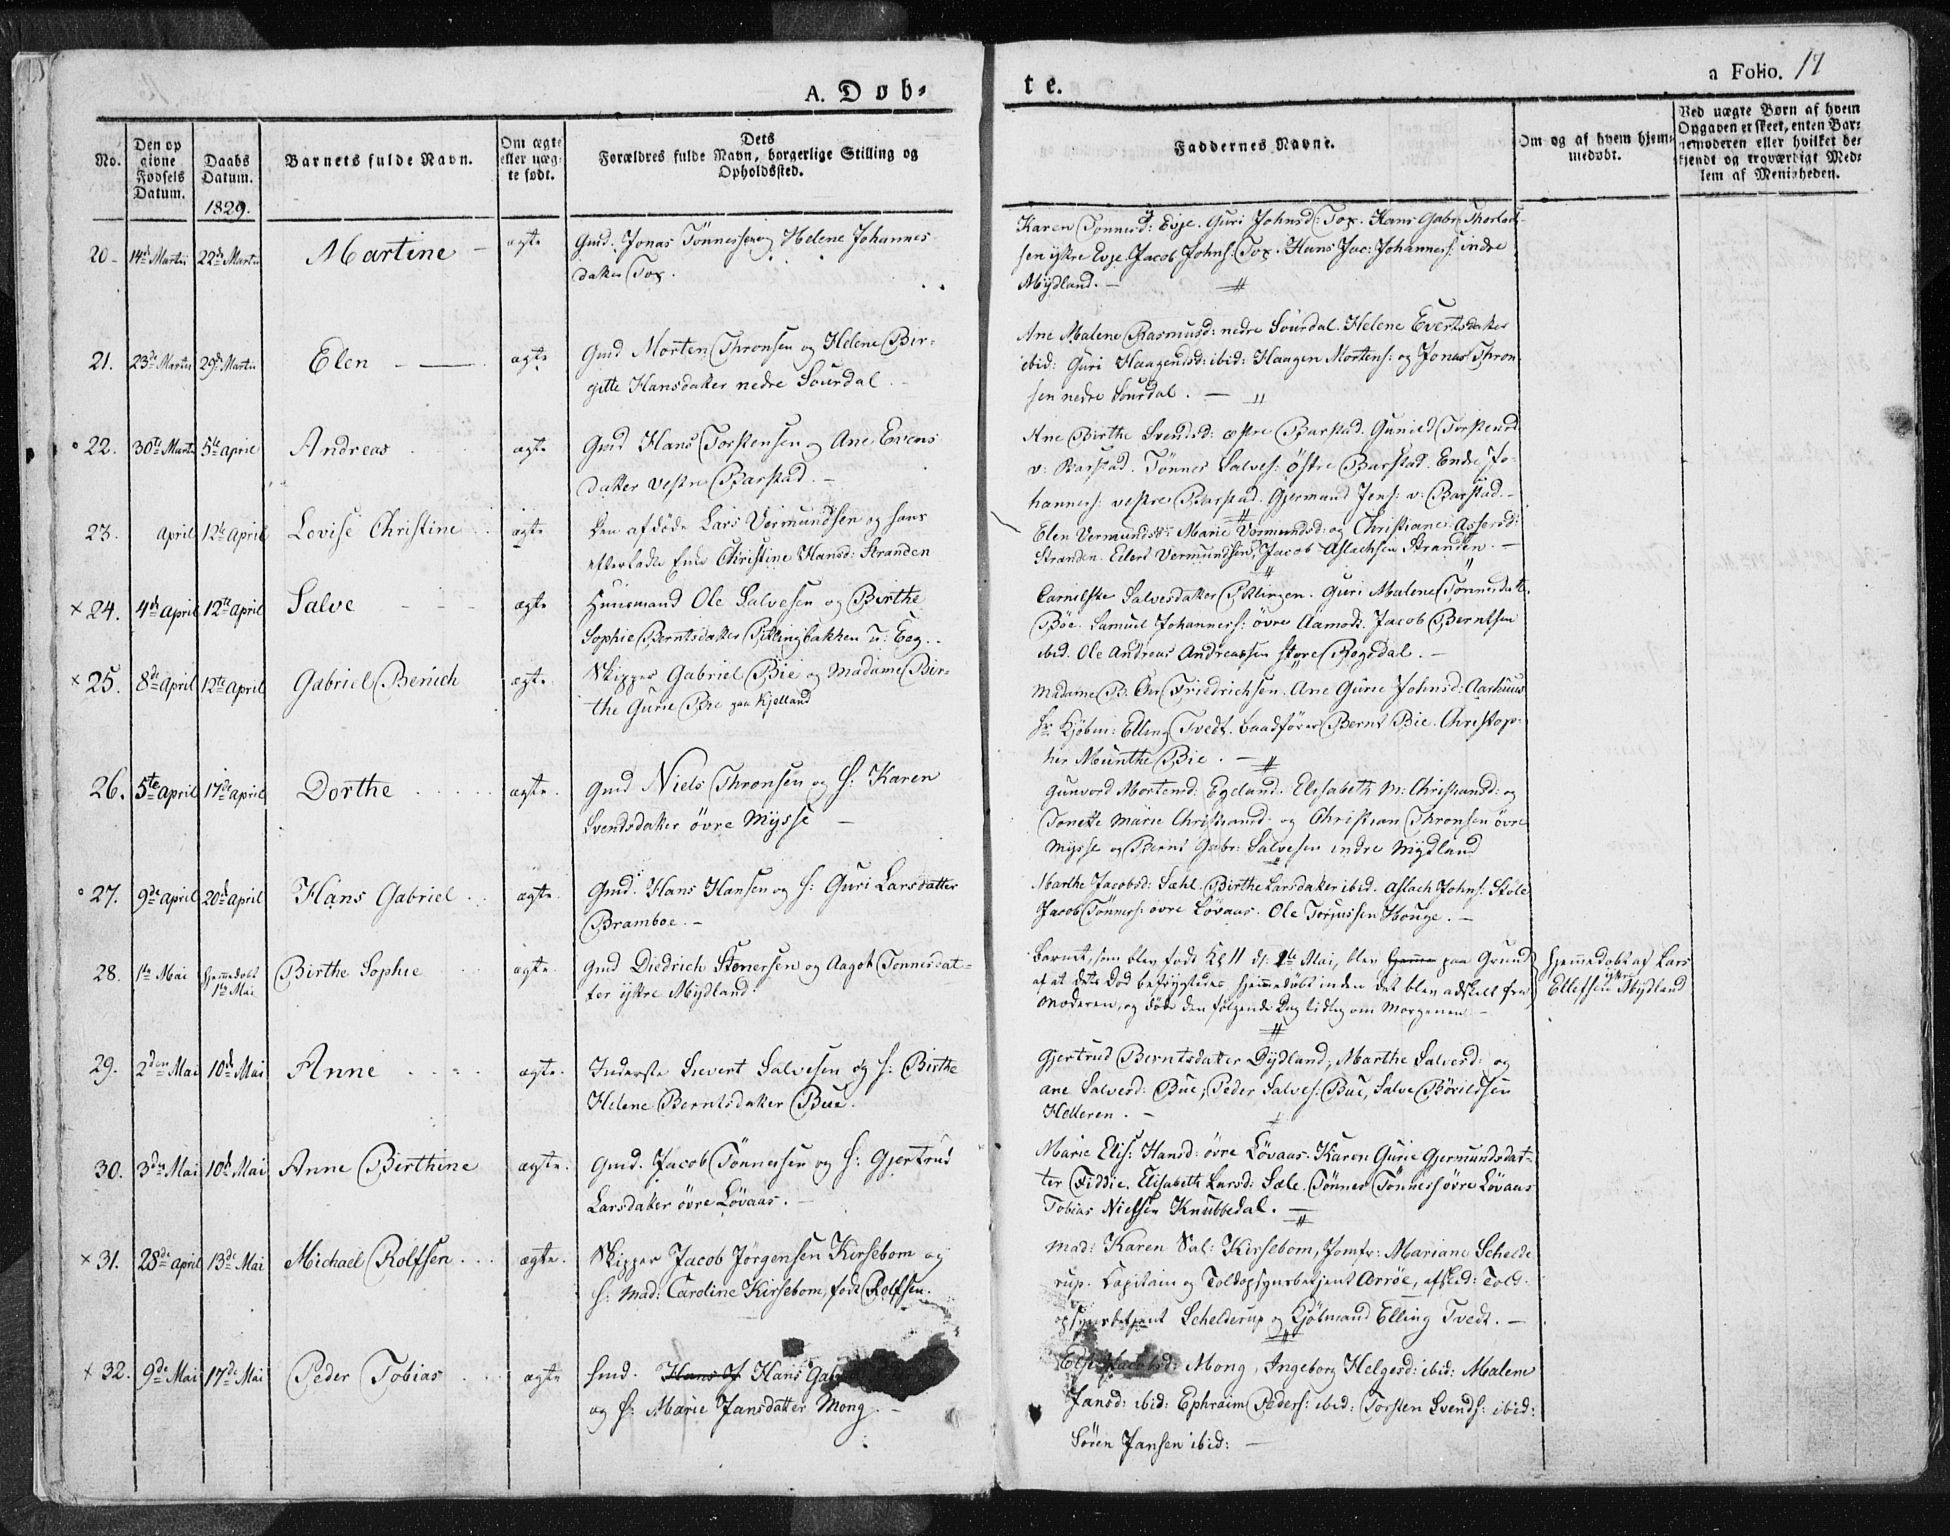 A. Døb-
te.
a Folio. 17
No.
Den opgivne Fødsels Datum.
Daabs Datum.
1829.
Barnets fulde Navn.
Om ægte eller uægte født.
Dets Forældres fulde Navn, borgerlige Stilling og Opholdssted.
Faddernes Navne.
Om og af hvem hjemmedøbt.
Ved uægte Børn af hvem Opgaven er skeet, enten Barnemoderen eller hvilket bekjendt og troværdigt Medlem af Menigheden.
20 14de Martii 22de Martii Martine ægte
Gmd. Jonas Tönnessen og Helene Johannes
datter Tox.
Karen Tönnesd: Evje. Guri Johnsd: Tox. Hans Gabr: Thorkel
sen ystre Evje. Jacob Johns: Tox. Hans Jac: Johanness: indre
Mydland.
21. 23de Martii 29de Martii Elen ægte
Gmd Morten Thronsen og Helene Bir-
gitte Hansdatter nedre Sourdal.
Ane Malene Rasmusd: nedre Sourdal. Helene Evertsdatter
ibid: Guri Haagensd: ibid: Haagen Mortens: og Jonas Thron
sen nedre Sourdal.
22. 30te Martii 5te April Andreas ægte
Gmd Hans Torstensen og Ane Evens
datter vestre Barstad.
Ane Birthe Svendsd: østre Barstad. Gunild Torstensd
v: Barstad. Tönnes Salves: östre Barstad. Endre Jo-
hanness: vestre Barstad. Gjermund Jens: v: Barstad.
23. April 12te April Lovise Christine ægte
Den afdöde Lars Vermundsen og hans
efterladte Enke Christine Hansd: Stranden
Elen Vermundsd: Marie Vermundsd: og Christiane Assersd:
Stranden. Edert Vermundsen, Jacob Aslachsen Stranden.
× 24. 4de April 12te April Salve ægte
Huusmand Ole Salvesen og Birthe
Sophie Berntsdatter Pitlingbakken u: Eeg.
Salvesdatter Pitlingen. Guri Malene Tönnesdat:
Böe. Samuel Johanness: övre Aamodt. Jacob Berntsen
ibid. Ole Andreas Andreassen store Rogsdal.
× 25. 8de April 12te April Gabriel Benich ægte
Skipper Gabriel Bie og Madame Bir-
the Gurie Bie paa Kjelland
Madame B. Chr Friedrichsen. Ane Gurie Johnsd: Aarhuus
Hr. Kjöbm: Elling Tvedt. Baadförer Bernt Bie. Christop-
her Meunthe Bie.
26. 5te April 17de April Dorthe ægte
Gmd Niels Thronsen og H: Karen
Svendsdatter övre Mysse
Gunvord Mortensd: Egeland. Elisabeth M: Christiansd: og
Tonette Marie Christiansd: og Christian Thronsen övre
Mysse og Bernt Gabr: Salvesen indre Mydland
27. 9de April 20de April Hans Gabriel ægte
Gmd. Hans Hansen og H: Guri Larsdatter
Bramboe.
Marthe Jacobsd: Sæhl. Birthe Larsdatter ibid. Aslach Johns: Stöle
Jacob Tönness: övre Lövaas. Ole Torjussen Houge.
28. 1te Mai Hjemmedöbt 1te Mai Birthe Sophie ægte
Gmd Diedrich Stenersen og Aagot Tonnesdat-
ter ystre Mydland
Barnet, som blev född Kl 11 d: 1te Mai, blev paa Grund
af at dets Död befrygtedes hjemmedöbt inden det blev adskilt fra
Moderen, og döde den fölgende Dag tidlig om Morgenen
Hjemmedöbt af Lars
Ellefsen ystre Mydland
29. 2den Mai 10de Mai Anne ægte
Inderste Sievert Salvesen og H: Birthe
Helene Berntsdatter Bue.
Gjertrud Berntsdatter Dydland, Marthe Salvesd: og
ane Salvesd: Bue, Peder Salves: Bue, Salve Bövildsen
Helleren.
30. 3die Mai 10de Mai Anne Berthine ægte
Gmd. Jacob Tönnessen og H: Gjertrud
Larsdatter övre Lövaas.
Marie Elis: Hansd: övre Lövaas. Karen Gurie Gjermundsdat-
ter Fiddie. Elisabeth Larsd: Sæle. Tönnes Tönness: övre Lövaas
Tobias Nielsen Knubbedal.
× 31. 28de April 13de Mai Michael Rolfsen ægte
Skipper Jacob Jörgensen Kirsebom og
H: Mad: Caroline Kirsebom, född Rolfsen.
Mad: Karen Sal: Kirsebom, Jomfr: Mariane Schelde
rup. Kapitain og Toldopsynsbetjent Arröe, afsked: Told-
opsynsbetjent Schelderup og Kjöbmand Elling Tvedt.
× 32. 9de Mai 17de Mai Peder Tobias ægte
Hmd. Hans Hans
og H: Marie Jansdatter Mong.
Jacobsd: Mong, Ingeborg Helgesd: ibid: Malene
Jansd: ibid: Ephraim Peders: ibid: Torsten Svends: ibid:
Sören Jansen ibid: